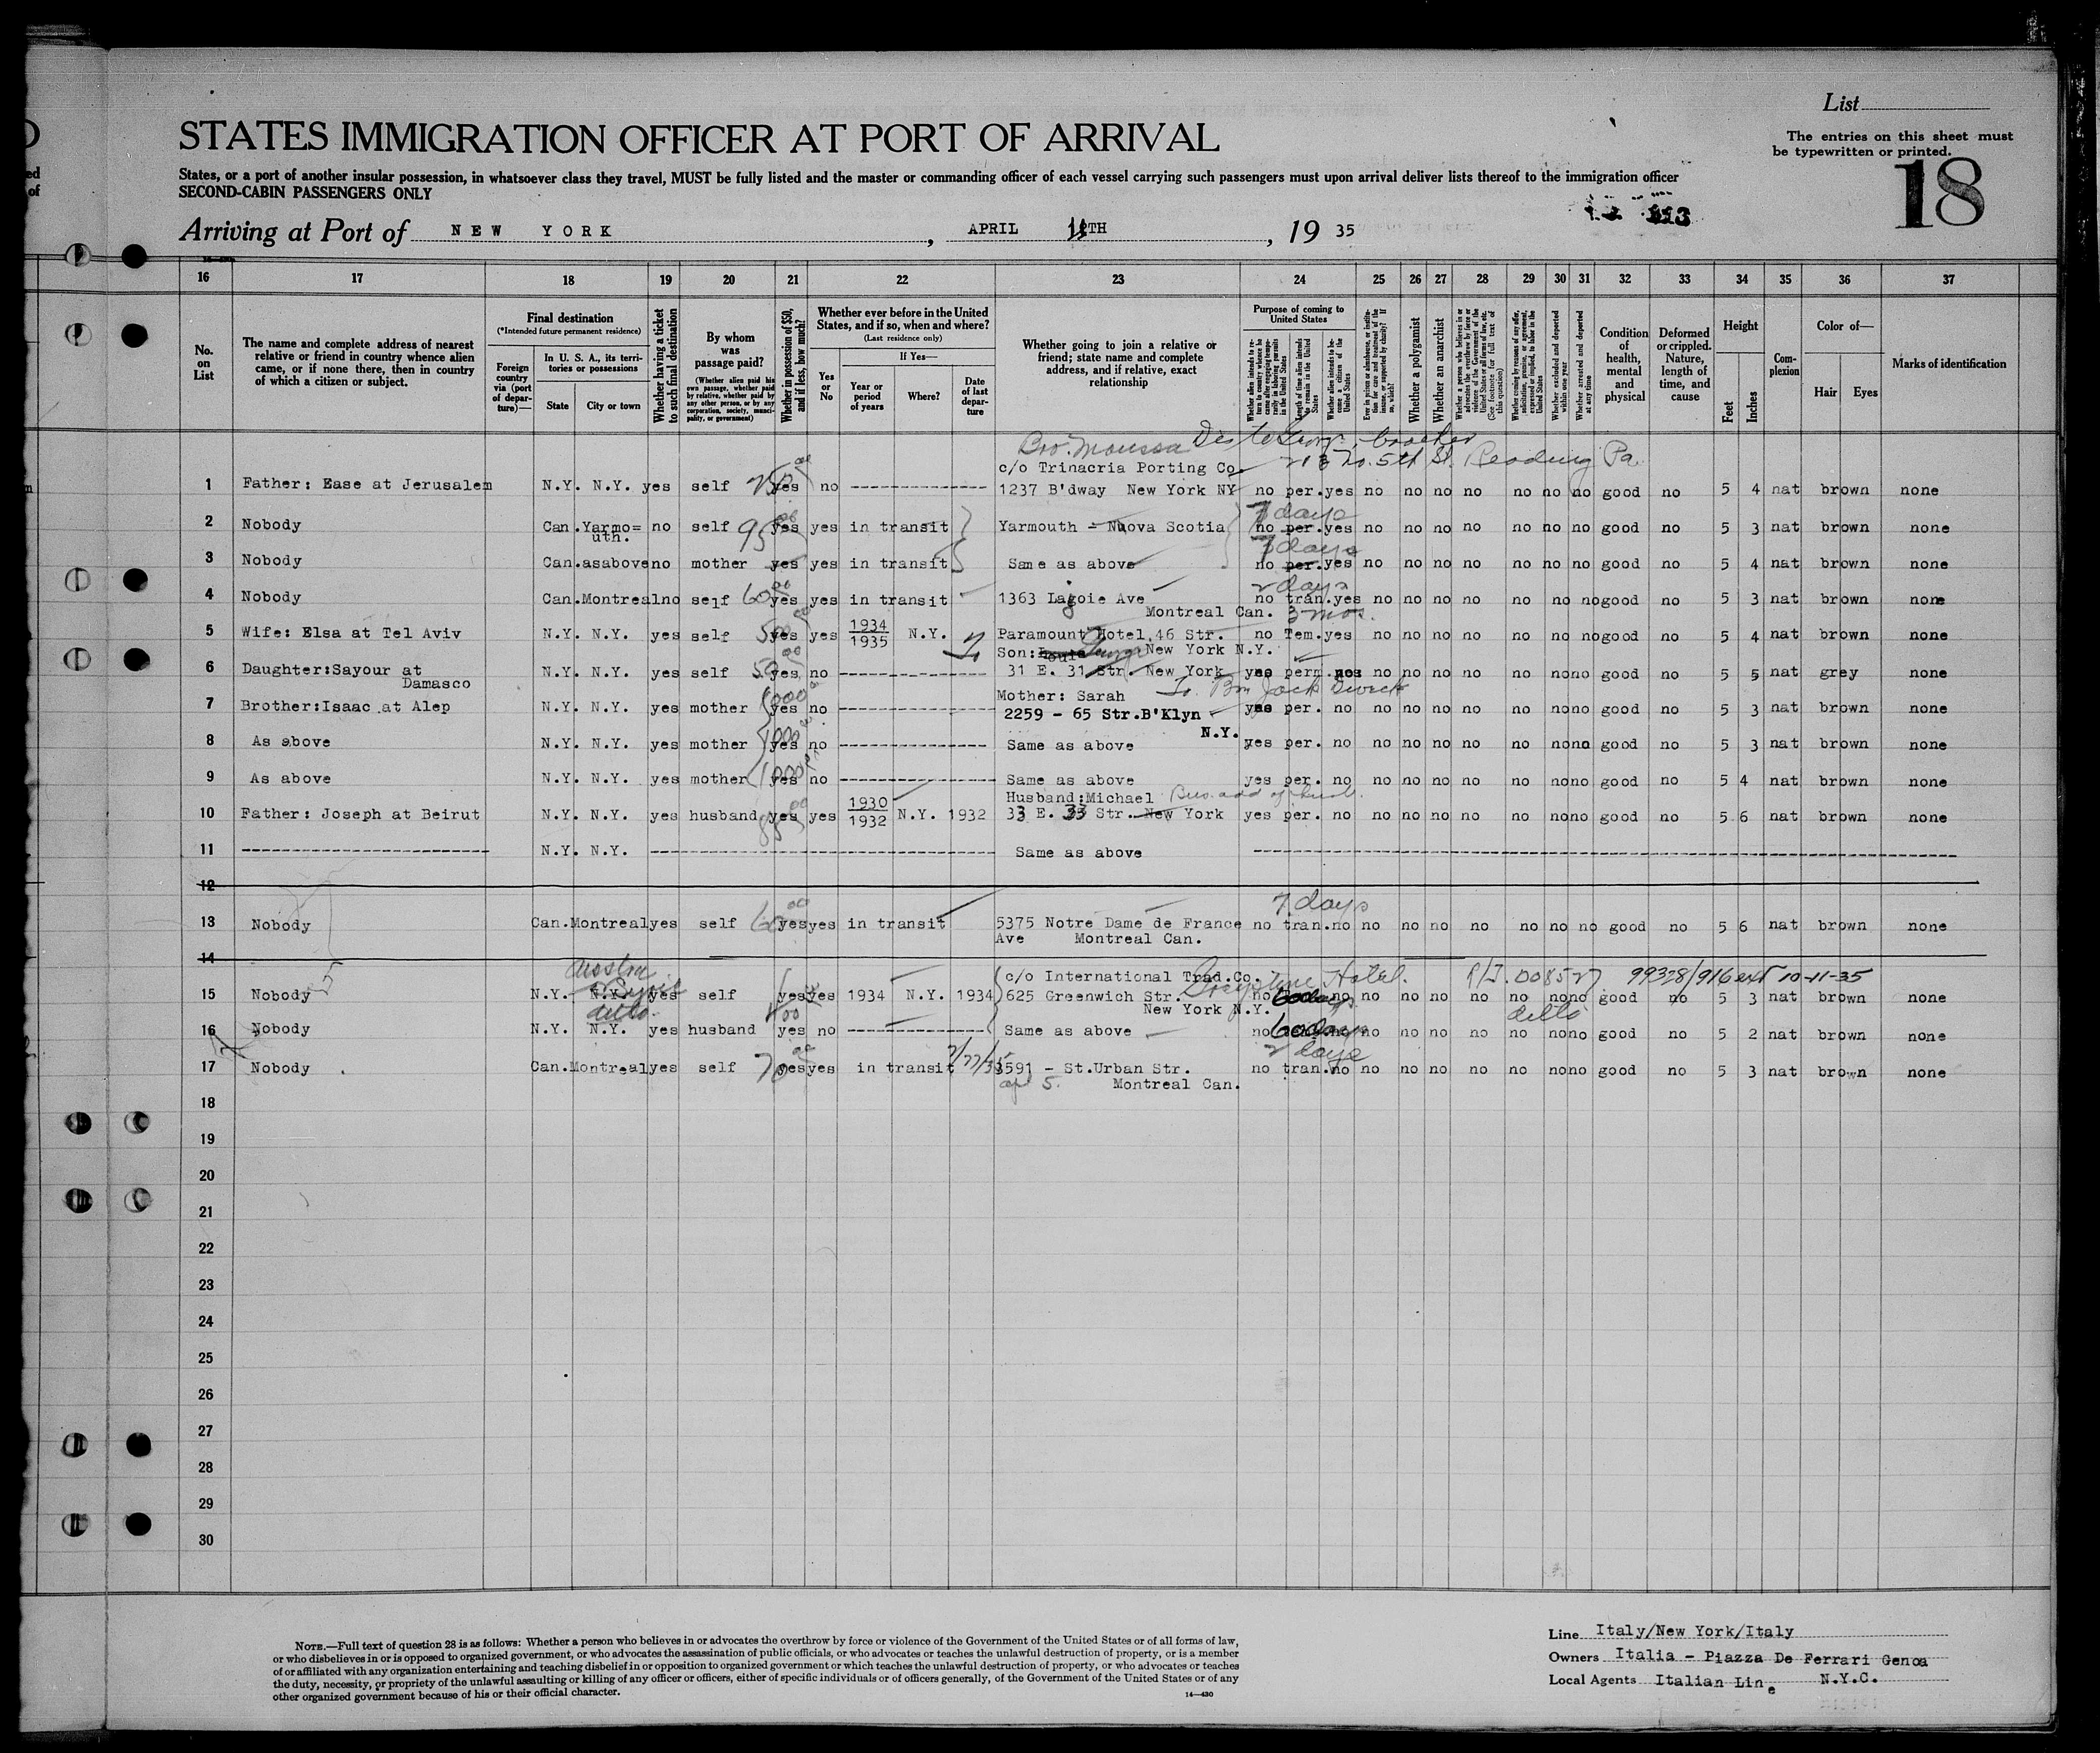 List
STATES IMMIGRATION OFFICER AT PORT OF ARRIVAL
The entries on this sheet must
be typewritten or printed.
States, or a port of another insular possession, in whatsoever class they travel, MUST be fully listed and the master or commanding officer of each vessel carrying such passengers must upon arrival deliver lists thereof to the immigration officer
SECOND-CABIN PASSENGERS ONLY
18
Arriving at Port of NEW YORK, APRIL TH, 19 35
16 17 18 19 20 21 22 23 24 25 26 27 28 29 30 31 32 33 34 35 36 37
No. on List
The name and complete address of nearest relative or friend in country whence alien came, or if none there, then in country of which a citizen or subject.
Final destination
(*Intended future permanent residence)
Foreign country via (port of departure)—
In U. S. A., its territories or possessions
State
City or town
Whether having a ticket to such final destination
By whom was passage paid?
(Whether alien paid his own passage, whether paid by relative, whether paid by any other person, or by any corporation, society, municipality, or government)
Whether in possession of $50, and if less, how much?
Whether ever before in the United States, and if so, when and where?
(Last residence only)
Yes or No
If Yes—
Year or period of years
Where?
Date of last departure
Whether going to join a relative or friend; state name and complete address, and if relative, exact relationship
Purpose of coming to United States
Length of time alien intends to remain in the United States
Whether alien intends to become a citizen of the United States
Whether a polygamist
Whether an anarchist
Whether excluded and deported within one year
Whether arrested and deported at any time
Condition of health, mental and physical
Deformed or crippled. Nature, length of time, and cause
Height
Feet
Inches
Complexion
Color of—
Hair
Eyes
Marks of identification
Bro. Moussa
213 No. 5th St. Reading Pa.
c/o Trinacria Porting Co.
1 Father: Ease at Jerusalem N.Y. N.Y. yes self yes no 1237 B'dway New York NY no per. yes no no no no no no no good no 5 4 nat brown none
7 days
2 Nobody Can. Yarmo= uth. no self 95 yes yes in transit Yarmouth - Nuova Scotia no per. yes no no no no no no no good no 5 3 nat brown none
7 days
3 Nobody Can. asabove no mother yes yes in transit Same as above no per. yes no no no no no no no good no 5 4 nat brown none
2 days
4 Nobody Can. Montreal no self 60 yes yes in transit 1363 Lagoie Ave no tran. yes no no no no no no no good no 5 3 nat brown none
Montreal Can. 3 mos.
5 Wife: Elsa at Tel Aviv N.Y. N.Y. yes self yes yes 1934 1935 N.Y. Paramount Hotel, 46 Str. no Tem. yes no no no no no no no good no 5 4 nat brown none
Son: New York N.Y.
6 Daughter: Sayour at Damasco N.Y. N.Y. yes self 50 yes no 31 E. 31 Str. New York perm. no no no no no no no good no 5 5 nat grey none
Mother: Sarah
7 Brother: Isaac at Alep N.Y. N.Y. yes mother 1000 yes no 2259 - 65 Str. B'Klyn per. no no no no no no no no good no 5 3 nat brown none
N.Y.
8 As above N.Y. N.Y. yes mother 1000 yes no Same as above yes per. no no no no no no no no good no 5 3 nat brown none
9 As above N.Y. N.Y. yes mother 1000 yes no Same as above yes per. no no no no no no no no good no 5 4 nat brown none
Husband: Michael
10 Father: Joseph at Beirut N.Y. N.Y. yes husband yes yes 1930 1932 N.Y. 1932 33 E. 33 Str. New York yes per. no no no no no no no no good no 5 6 nat brown none
11 N.Y. N.Y. Same as above
12
7 days
13 Nobody Can. Montreal yes self yes yes in transit 5375 Notre Dame de France no tran. no no no no no no no no good no 5 6 nat brown none
Ave Montreal Can.
14
c/o International Trad. Co. Hotel. 10-11-35
15 Nobody N.Y. N.Y. yes self yes yes 1934 N.Y. 1934 625 Greenwich Str. no 60 days no no no no no no no no good no 5 3 nat brown none
ditto New York N.Y. ditto
16 Nobody N.Y. N.Y. yes husband yes no Same as above no 60 days no no no no no no no good no 5 2 nat brown none
2 days
17 Nobody Can. Montreal yes self 70 yes yes in transit 3591 - St. Urban Str. no tran. no no no no no no no no good no 5 3 nat brown none
Montreal Can.
18
19
20
21
22
23
24
25
26
27
28
29
30
NOTE.—Full text of question 28 is as follows: Whether a person who believes in or advocates the overthrow by force or violence of the Government of the United States or of all forms of law,
or who disbelieves in or is opposed to organized government, or who advocates the assassination of public officials, or who advocates or teaches the unlawful destruction of property, or is a member
of or affiliated with any organization entertaining and teaching disbelief in or opposition to organized government or which teaches the unlawful destruction of property, or who advocates or teaches
the duty, necessity, or propriety of the unlawful assaulting or killing of any officer or officers, either of specific individuals or of officers generally, of the Government of the United States or of any
other organized government because of his or their official character.
14—430
Line Italy/New York/Italy
Owners Italia - Piazza De Ferrari Genoa
Local Agents Italian Line N.Y.C.